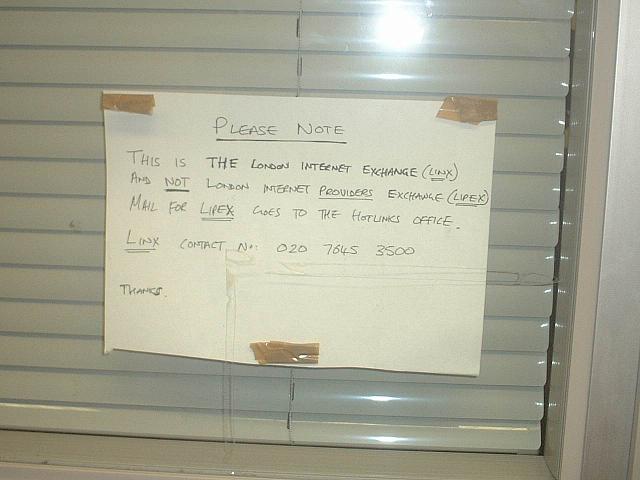 PLEASE NOTE
THIS IS THE LONDON INTERNET EXCHANGE (LINX)
AND NOT LONDON INTERNET PROVIDERS EXCHANGE (LIPEX)
MAIL FOR LIPEX GOES TO THE HOTLINKS OFFICE.
LINX CONTACT No: 020 7645 3500
THANKS.